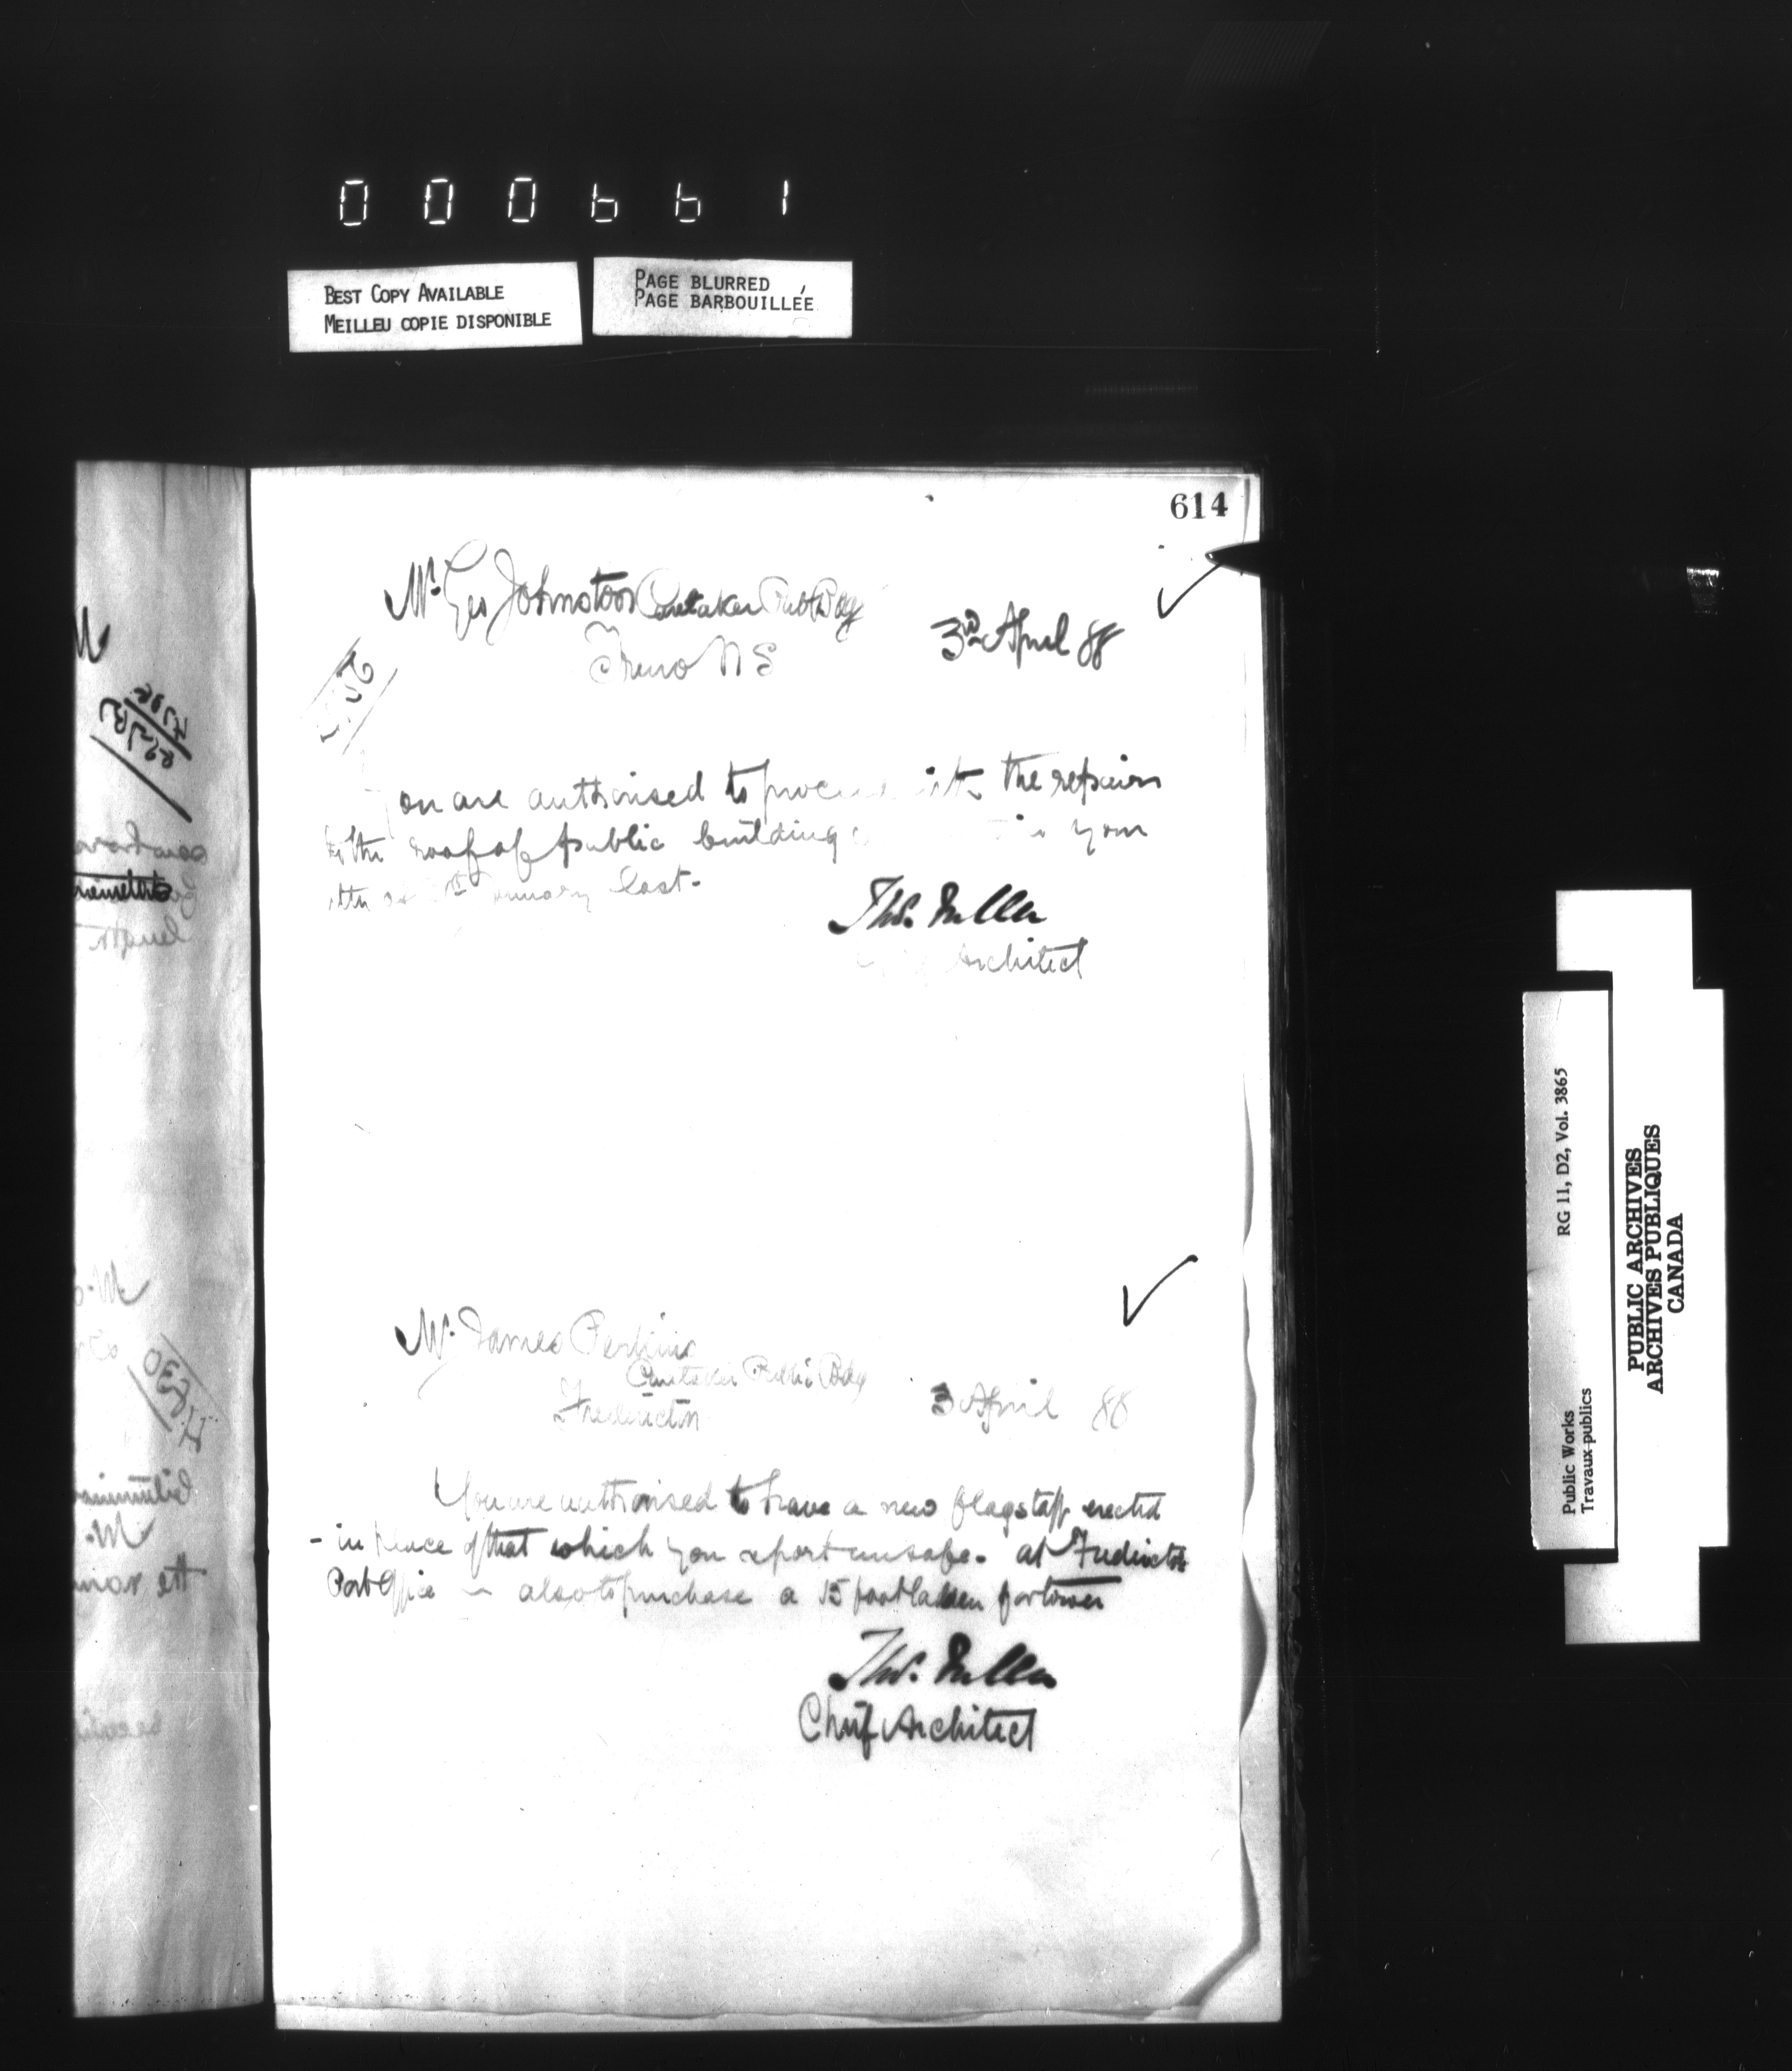 000661
BEST COPY AVAILABLE
MEILLEU COPIE DISPONIBLE
PAGE BLURRED
PAGE BARBOUILLÉE
614
Mr. Geo Johnston Caretaker Pub Bdg
Truro N S
3rd April 88
You are authorised to proceed with the repairs
to the roof of public building your
last.
Thos. Fuller
Architect
Mr. James Perkins
Caretaker Public Bdg
Fredericton
3 April 88
You are authorised to have a new flagstaff erected
- in place of that which you report unsafe. at Fredericton
Post Office — also to purchase a 15 foot ladder for tower
Thos. Fuller
Chief Architect
Public Works
Travaux publics
RG 11, D2, Vol. 3865
PUBLIC ARCHIVES
ARCHIVES PUBLIQUES
CANADA